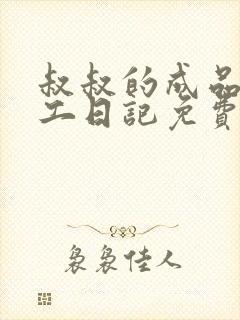 叔叔的成品
工日記免費
裊裊佳人